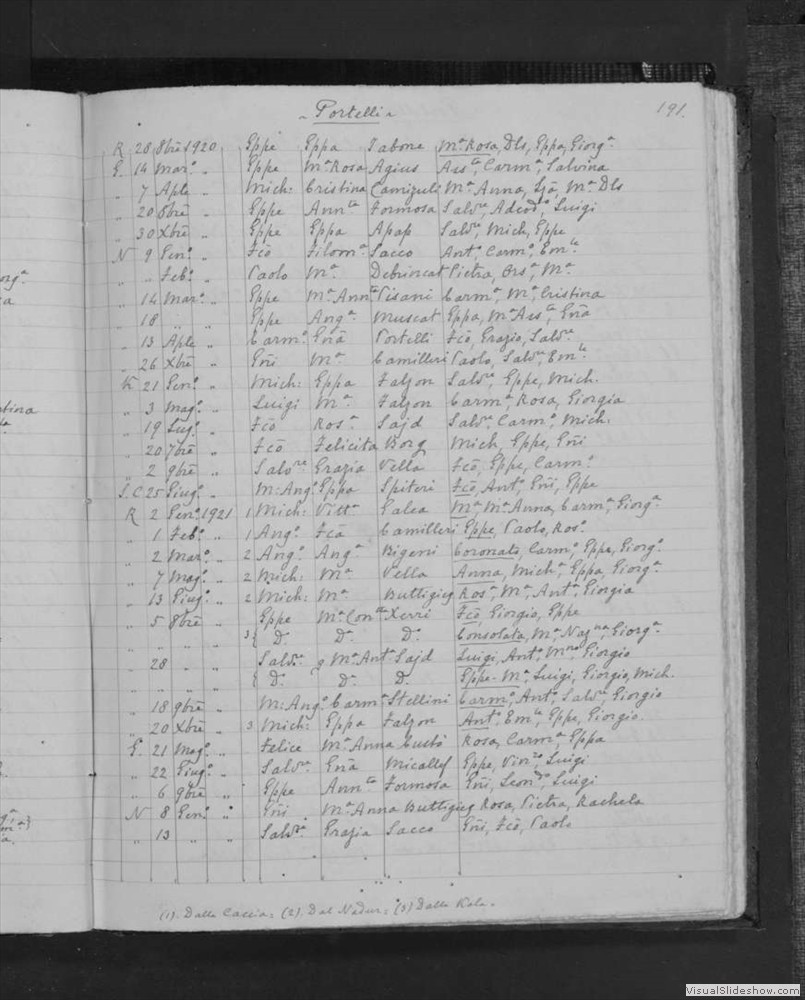 Portelli
191.
R 28 8bre 1920 Eppe Eppa Tabone Mª Rosa, Dls, Eppa, Giorgª
G. 14 Marº „ Eppe Mª Rosa Agius Assta, Carmª, Salvina
„ 7 Aple „ Mich: Cristina Camizuli Mª Anna, Mª Dls
„ 20 8bre „ Eppe Annta Formosa Salvre, Adeodº, Luigi
„ 30 Xbre „ Eppe Eppa Apap Salvre, Mich, Eppe
N 9 Genº „ Fcõ Filomª Sacco Antº, Carmº, Emle
„ „ Febº „ Paolo Mª Debrincat Pietra, Orsª, Mª
„ 14 Marº „ Eppe Mª Annta Pisani Carmª, Mª Cristina
„ 18 „ „ Eppe Angª Muscat Eppa, Mª Assta, Gnã
„ 13 Aple „ Carmº Gnã Portelli Fcõ, Grazio, Salvre
„ 26 Xbre „ Gñi Mª Camilleri Paolo, Salvre, Emle
K 21 Genº „ Mich: Eppa Falzon Salvre, Eppe, Mich.
„ 3 Magº „ Luigi Mª Falzon Carmª, Rosa, Giorgia
„ 19 Lugº „ Fcõ Rosª Sajd Salvre, Carmª, Mich.
„ 20 7bre „ Fcõ Felicita Borg Mich, Eppe, Gñi
„ 2 9bre „ Salvre Grazia Vella Fcõ, Eppe, Carmº
S. C 25 Giugº „ M: Angº Eppa Spiteri Fcõ, Antº, Gñi, Eppe
R 2 Genº 1921 1 Mich: Vittª Galea Mª, Mª Anna, Carmª, Giorgª
„ 1 Febº „ 1 Angº Fcã Camilleri Eppe, Paolo, Rosº
„ 2 Marº „ 2 Angº Angª Bigeni Coronato, Carmº, Eppe, Giorgº
„ 7 Magº „ 2 Mich: Mª Vella Anna, Michª, Eppa, Giorgª
„ 13 Giugº „ 2 Mich: Mª Buttigieg Rosª, Mª, Antª, Giorgia
„ 5 8bre „ Eppe Mª Conta Xerri Fcõ, Giorgio, Eppe
„ „ „ „ 3{ Dº Dº Dº Consolata, Mª Naz., Giorgª
„ 28 „ „ Salvre Mª Ant Sajd Luigi, Antº, Giorgio
„ „ „ „ { Dº Dº Dº Eppe-Mª, Luigi, Giorgio, Mich.
„ 18 9bre „ M: Angº Carmª Stellini Carmº, Antº, Salvre, Giorgio
„ 20 Xbre „ 3 Mich: Eppa Falzon Antº, Emle, Eppe, Giorgio.
G. 21 Magº „ Felice Mª Anna Custò Rosa, Carmª, Eppa
„ 22 Giugº „ Salvre Gnã Micallef Eppe, Vinzo, Luigi
„ 6 9bre „ Eppe Annta Formosa Gñi, Leondo, Luigi
N 8 Genº „ Gñi Mª Anna Buttigieg Rosa, Pietra, Rachela
„ 13 „ „ Salvre Grazia Sacco Gñi, Fcõ, Paolo
(1). Dalla Caccia: (2). Dal Nadur: (3) Dalla Kala.
VisualSlideshow.com